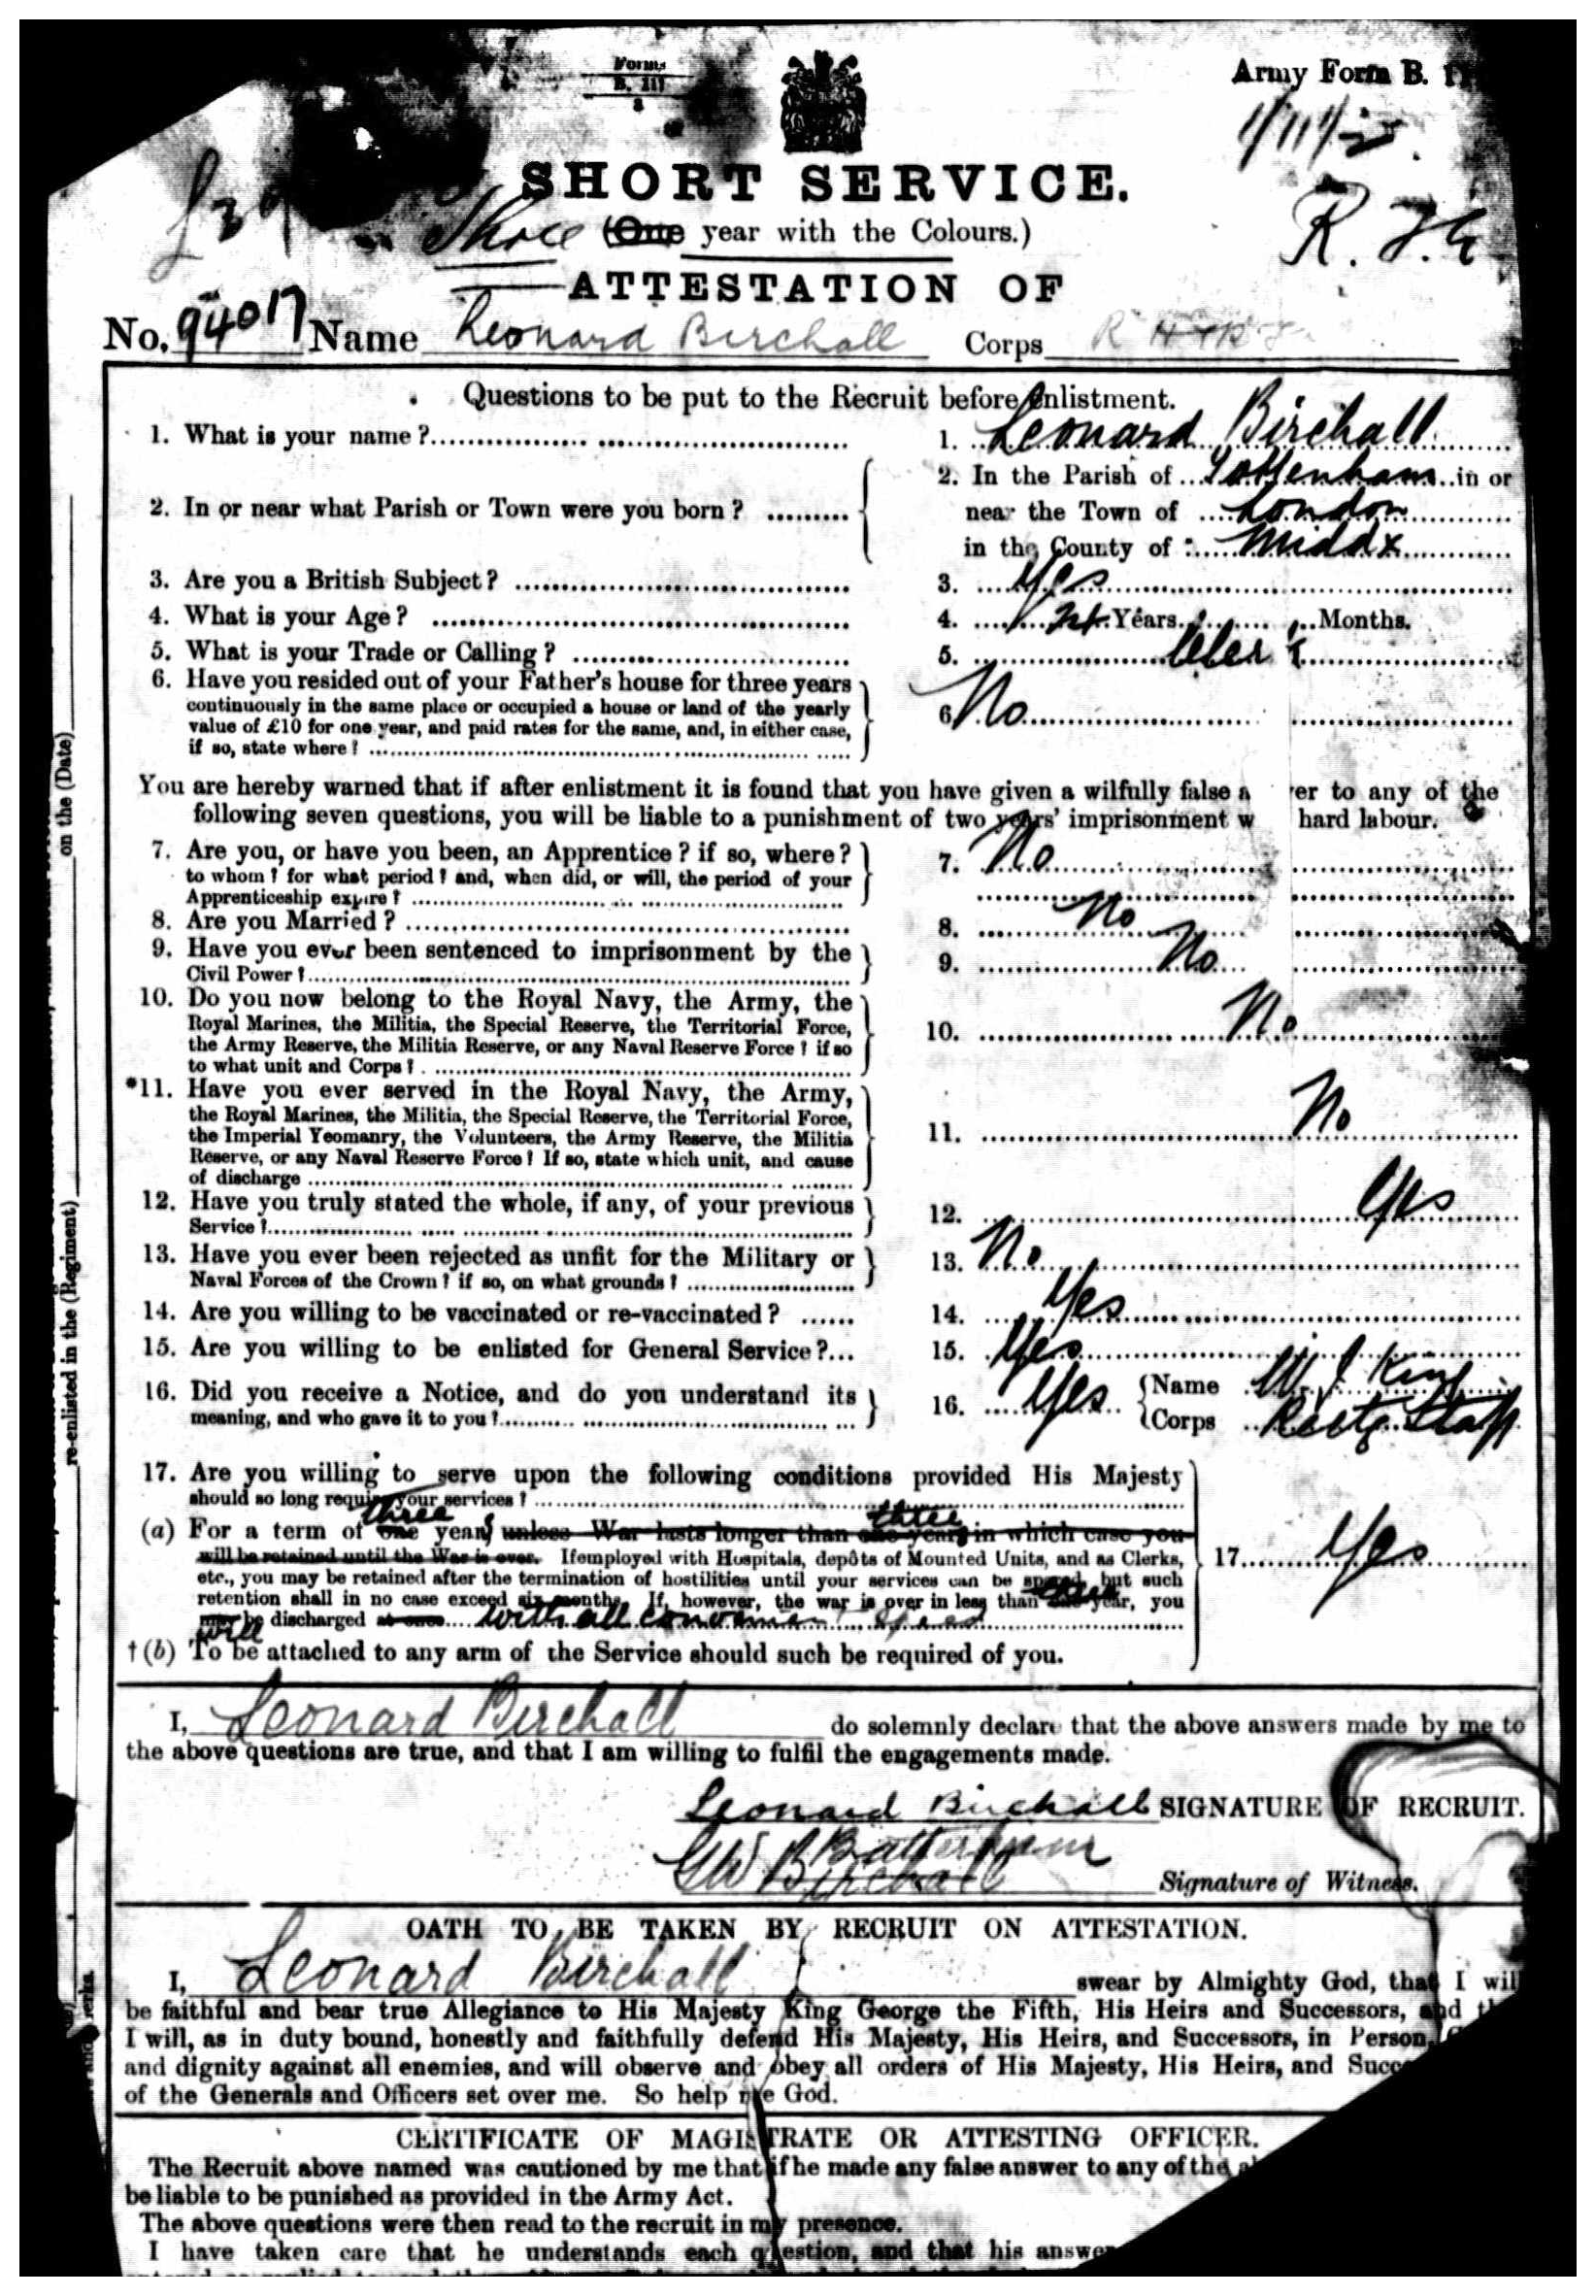 Forms
B. 111
Army Form B.
SHORT SERVICE.
Three (One year with the Colours.)
R.
ATTESTATION OF
No. 94017 Name Leonard Birchall Corps
Questions to be put to the Recruit before Enlistment.
1. What is your name? 1. Leonard Birchall
2. In or near what Parish or Town were you born? 2. In the Parish of Tottenham in or
near the Town of London
in the County of Middx
3. Are you a British Subject? 3. Yes
4. What is your Age? 4. Years Months.
5. What is your Trade or Calling? 5.
6. Have you resided out of your Father's house for three years
continuously in the same place or occupied a house or land of the yearly
value of £10 for one year, and paid rates for the same, and, in either case,
if so, state where? 6. No
You are hereby warned that if after enlistment it is found that you have given a wilfully false a er to any of the
following seven questions, you will be liable to a punishment of two years' imprisonment w hard labour.
7. Are you, or have you been, an Apprentice? if so, where? 7. No
to whom? for what period? and, when did, or will, the period of your
Apprenticeship expire?
8. Are you Married? 8. No
9. Have you ever been sentenced to imprisonment by the 9. No
Civil Power?
10. Do you now belong to the Royal Navy, the Army, the
Royal Marines, the Militia, the Special Reserve, the Territorial Force, 10. No
the Army Reserve, the Militia Reserve, or any Naval Reserve Force? if so
to what unit and Corps?
*11. Have you ever served in the Royal Navy, the Army,
the Royal Marines, the Militia, the Special Reserve, the Territorial Force,
the Imperial Yeomanry, the Volunteers, the Army Reserve, the Militia 11. No
Reserve, or any Naval Reserve Force? If so, state which unit, and cause
of discharge
12. Have you truly stated the whole, if any, of your previous 12. Yes
Service?
13. Have you ever been rejected as unfit for the Military or 13. No
Naval Forces of the Crown? if so, on what grounds?
14. Are you willing to be vaccinated or re-vaccinated? 14. Yes
15. Are you willing to be enlisted for General Service?... 15. Yes
16. Did you receive a Notice, and do you understand its 16. Yes Name W J King
meaning, and who gave it to you? Corps Rectg Staff
17. Are you willing to serve upon the following conditions provided His Majesty
should so long require your services?
three three
(a) For a term of one year, unless War lasts longer than one year, in which case you
will be retained until the War is over. If employed with Hospitals, depôts of Mounted Units, and as Clerks, 17. Yes
etc., you may be retained after the termination of hostilities until your services can be spared, but such
retention shall in no case exceed six months. If, however, the war is over in less than three one year, you
may will be discharged at once with all convenient speed
†(b) To be attached to any arm of the Service should such be required of you.
I, Leonard Birchall do solemnly declare that the above answers made by me to
the above questions are true, and that I am willing to fulfil the engagements made.
Leonard Birchall SIGNATURE OF RECRUIT.
G W Birchall Signature of Witness.
OATH TO BE TAKEN BY RECRUIT ON ATTESTATION.
I, Leonard Birchall swear by Almighty God, that I will
be faithful and bear true Allegiance to His Majesty King George the Fifth, His Heirs and Successors, and
I will, as in duty bound, honestly and faithfully defend His Majesty, His Heirs, and Successors, in Person,
and dignity against all enemies, and will observe and obey all orders of His Majesty, His Heirs, and Succ
of the Generals and Officers set over me. So help me God.
CERTIFICATE OF MAGISTRATE OR ATTESTING OFFICER.
The Recruit above named was cautioned by me that if he made any false answer to any of the
be liable to be punished as provided in the Army Act.
The above questions were then read to the recruit in my presence.
I have taken care that he understands each question, and that his answer
on the (Date)
re-enlisted in the (Regiment)